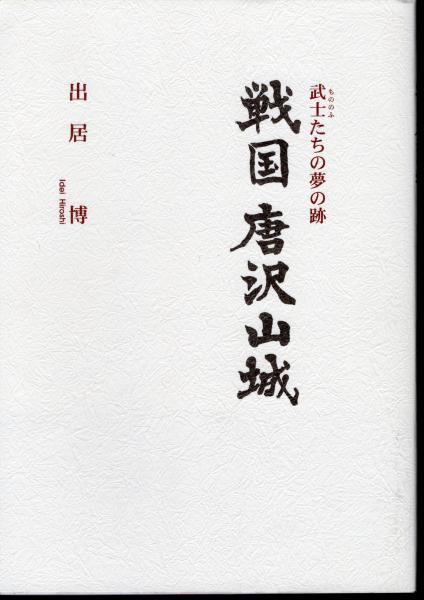 武士たちの夢の跡
もののふ
戦国 唐沢山城
出居 博
Idei Hiroshi